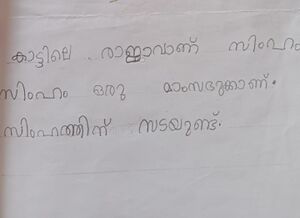 കാട്ടിലെ രാജാവാണ് സിംഹം
സിംഹം ഒരു മാംസഭുക്കാണ്.
സിംഹത്തിന് സടയുണ്ട്.